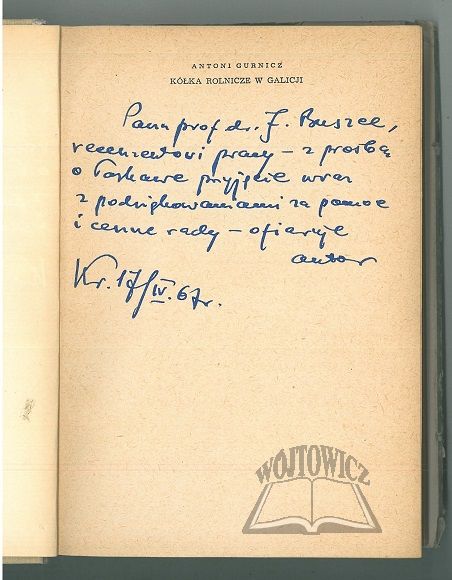 ANTONI GURNICZ
KÓŁKA ROLNICZE W GALICJI
Panu prof. dr. J. Buszce,
recenzentowi pracy – z prośbą
o łaskawe przyjęcie wraz
z podziękowaniami za pomoc
i cenne rady – ofiaruje
autor
Kr. 17/IV. 67r.
WÓJTOWICZ